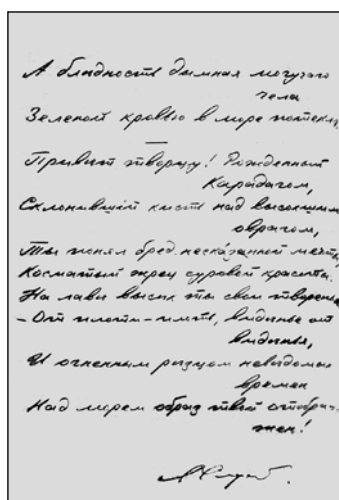 А бледность дымная могучего
чела
Зеленой кровью в море потекла.
Привет творцу! Рожденный
Карадагом,
Склонивший кисть над высохшим
оврагом,
Ты понял бред несказанной мечты,
Косматый жрец суровой красоты.
На лаве высек ты свои творенья
– От плоти – плоть, виденье от
виденья,
И огненным резцом неведомых
времен
Над морем образ твой отображен!